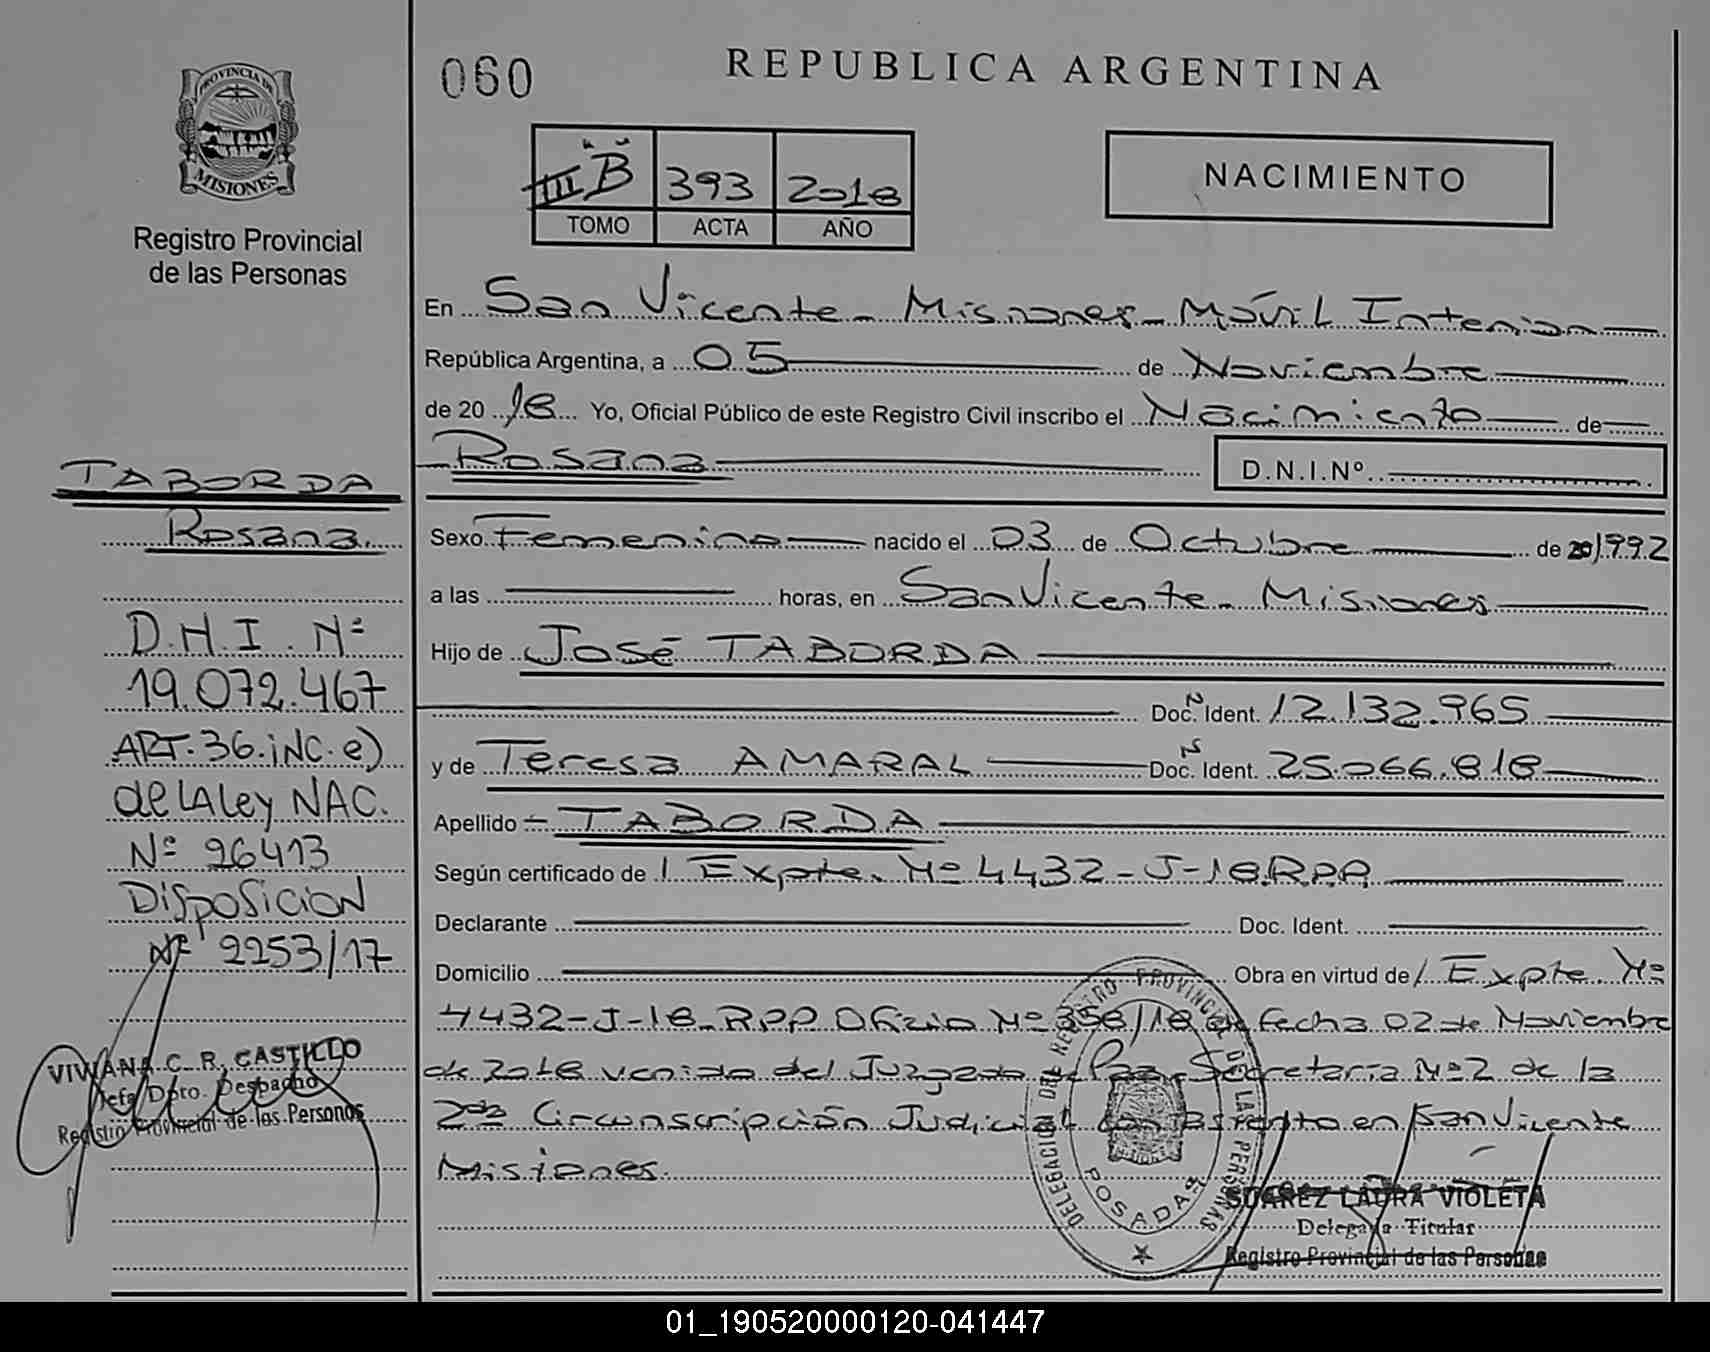 060
REPUBLICA ARGENTINA
PROVINCIA DE
MISIONES
Registro Provincial
de las Personas
III B 393 2018
TOMO ACTA AÑO
NACIMIENTO
En San Vicente - Misiones - Móvil Interior
República Argentina, a 05 de Noviembre
de 20 18 Yo, Oficial Público de este Registro Civil inscribo el Nacimiento de
Rosana D.N.I.Nº
TABORDA
Rosana.
D.N.I. Nº
19.072.467
ART.36.iNC.e)
de LA Ley NAC.
Nº 26413
DisposicioN
Nº 2253/17
VIVIANA C. R. CASTILLO
Jefa Dpto. Despacho
Registro Provincial de las Personas
Sexo Femenino nacido el 03 de Octubre de 20 1992
a las horas, en San Vicente - Misiones
Hijo de José TABORDA
Doc. Ident. N 12.132.965
y de Teresa AMARAL Doc. Ident. N 25.066.818
Apellido - TABORDA
Según certificado de / Expte. Nº 4432-J-18.RPP
Declarante Doc. Ident.
Domicilio Obra en virtud de / Expte. Nº
4432-J-18-RPP Oficio Nº 358/18 de fecha 02 de Noviembre
de 2018 venido del Juzgado de Paz, Secretaría Nº2 de la
2da Circunscripción Judicial con asiento en San Vicente
Misiones.
DELEGACION DEL REGISTRO PROVINCIAL DE LAS PERSONAS
POSADAS
SUAREZ LAURA VIOLETA
Delegada Titular
Registro Provincial de las Personas
01_190520000120-041447